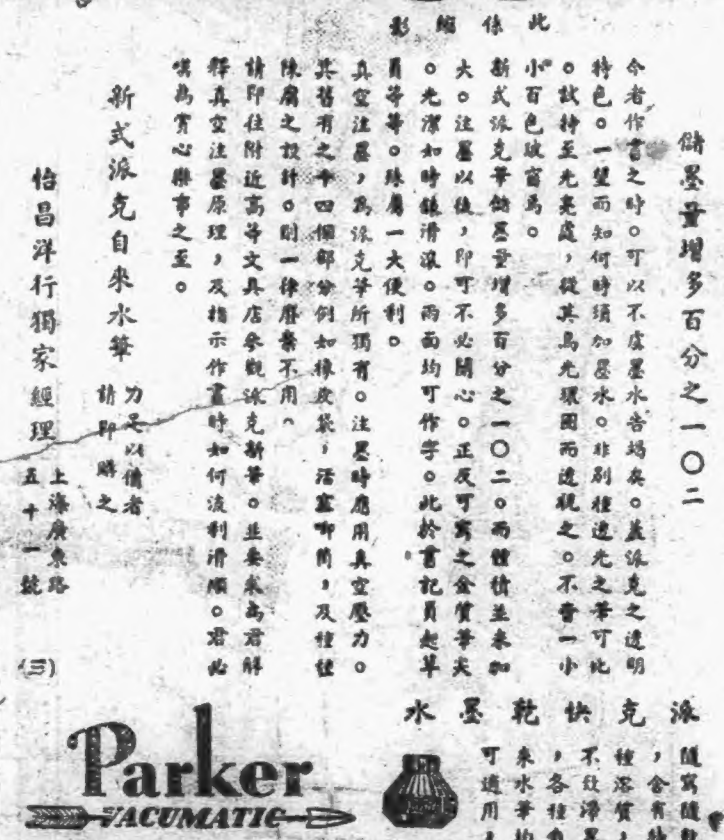 此係縮影
儲墨量增多百分之一〇二
今者作書之時。可以不虞墨水告竭矣。蓋派克之透明
特色。一望而知何時須加墨水。非別種透光之筆可比
。試持至光亮處，從其烏光環圈而透視之。不啻一小
小百色玻窗焉。
新式派克筆儲墨量增多百分之一〇二。而體積並未加
大。注墨以後，即可不必關心。正反可寫之金質筆尖
。光潔如時鐘滑滾。兩面均可作字。此於書記員起草
員等等。殊屬一大便利。
真空注墨，為派克筆所獨有。注墨時應用真空壓力。
其舊有之十四個部分例如橡皮袋，活塞唧筒，及種種
陳腐之設計。則一律廢棄不用。
請即往附近高等文具店參觀派克新筆。並要求為君解
釋真空注墨原理，及指示作書時如何流利滑順。君必
嘆為賞心樂事之至。
新式派克自來水筆
力足以償者
請即購之
怡昌洋行獨家經理
上海廣東路
五十一號
(三)
派克快乾墨水
隨寫隨乾
，含有
種溶質
不致滯
，各種
來水筆均
可適用
Parker
VACUMATIC